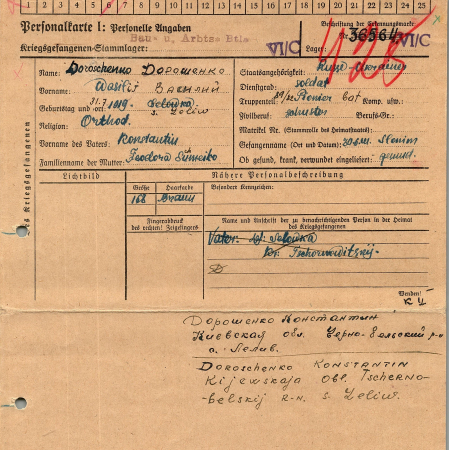 1 2 3 4 5 6 7 8 9 10 11 12 13 14 15 16 17 18 19 20 21 22 23 24 25
Personalkarte I: Personelle Angaben
Beschriftung der Erkennungsmarke
Bau- u. Arbts-Btl.
Kriegsgefangenen-Stammlager: VI/C
Lager: VI/C
Name: Doroschenko Дорошенко
Vorname: Wasilij Василий
Geburtstag und -ort: 31.7.1919
Religion: Orthod.
Vorname des Vaters: Konstantin
Familienname der Mutter: Feodora
Staatsangehörigkeit: Russe-Ukraine
Dienstgrad: soldat
Truppenteil: Pionier bat Komp. usw.
Zivilberuf: Berufs-Gr.:
Matrikel Nr. (Stammrolle des Heimatstaates):
Gefangennahme (Ort und Datum): Slonim
Ob gesund, krank, verwundet eingeliefert: gesund.
Lichtbild
Nähere Personalbeschreibung
Größe Haarfarbe Besondere Kennzeichen:
168 braun
Fingerabdruck
des rechten! Zeigefingers
Name und Anschrift der zu benachrichtigenden Person in der Heimat
des Kriegsgefangenen
Vater:
Tschornowitzkij
Wenden!
Дорошенко Константин
Киевская обл. Черно-бельский р-н
с. Лелив.
Doroschenko Konstantin
Kijewskaja obl. Tscherno-
belskij r-n. s Leliw.